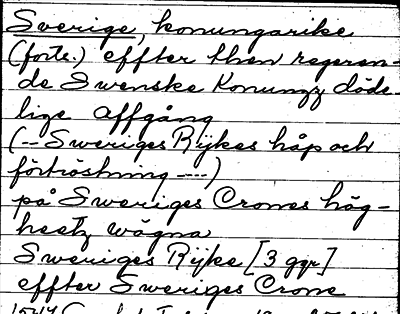 Sverige, konungarike
(forts.) effter then regeran-
de Swenske Konungz döde-
lige affgång
(-- Sweriges Rijkes håp och
förtröstning ---)
på Sweriges Crones hög-
heetz wägna
Sweriges Rijke [3 ggr]
effter Sweriges Crone